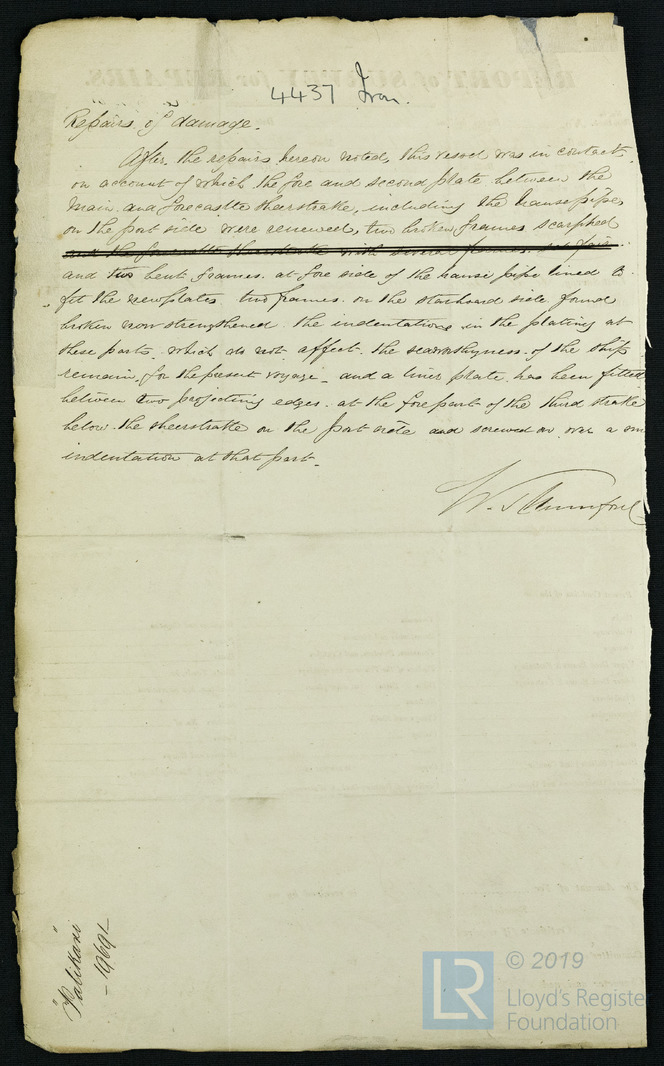 4437 Iron.
Repairs of damage.
After the repairs hereon noted, this vessel was in contact
on account of which the fore and second plate between the
main and forecastle sheerstrake, including the hause pipe,
on the port side were renewed, two broken frames scarphed
and the forecastle sheerstrake with several frames set fair
and two bent frames at fore side of the hause pipe lined to
fit the new plates. two frames on the starboard side found
broken now strengthened. the indentations in the plating at
these parts, which do not affect the seaworthyness of the ship
remain for the present voyage - and a liner plate has been fitted
between two projecting edges at the fore part of the third strake
below the sheerstrake on the port side and screwed on was a
indentation at that part.
"Palikari"
- 19691 -
© 2019
LR
Lloyd's Register
Foundation
REPORT of SURVEY for REPAIRS.